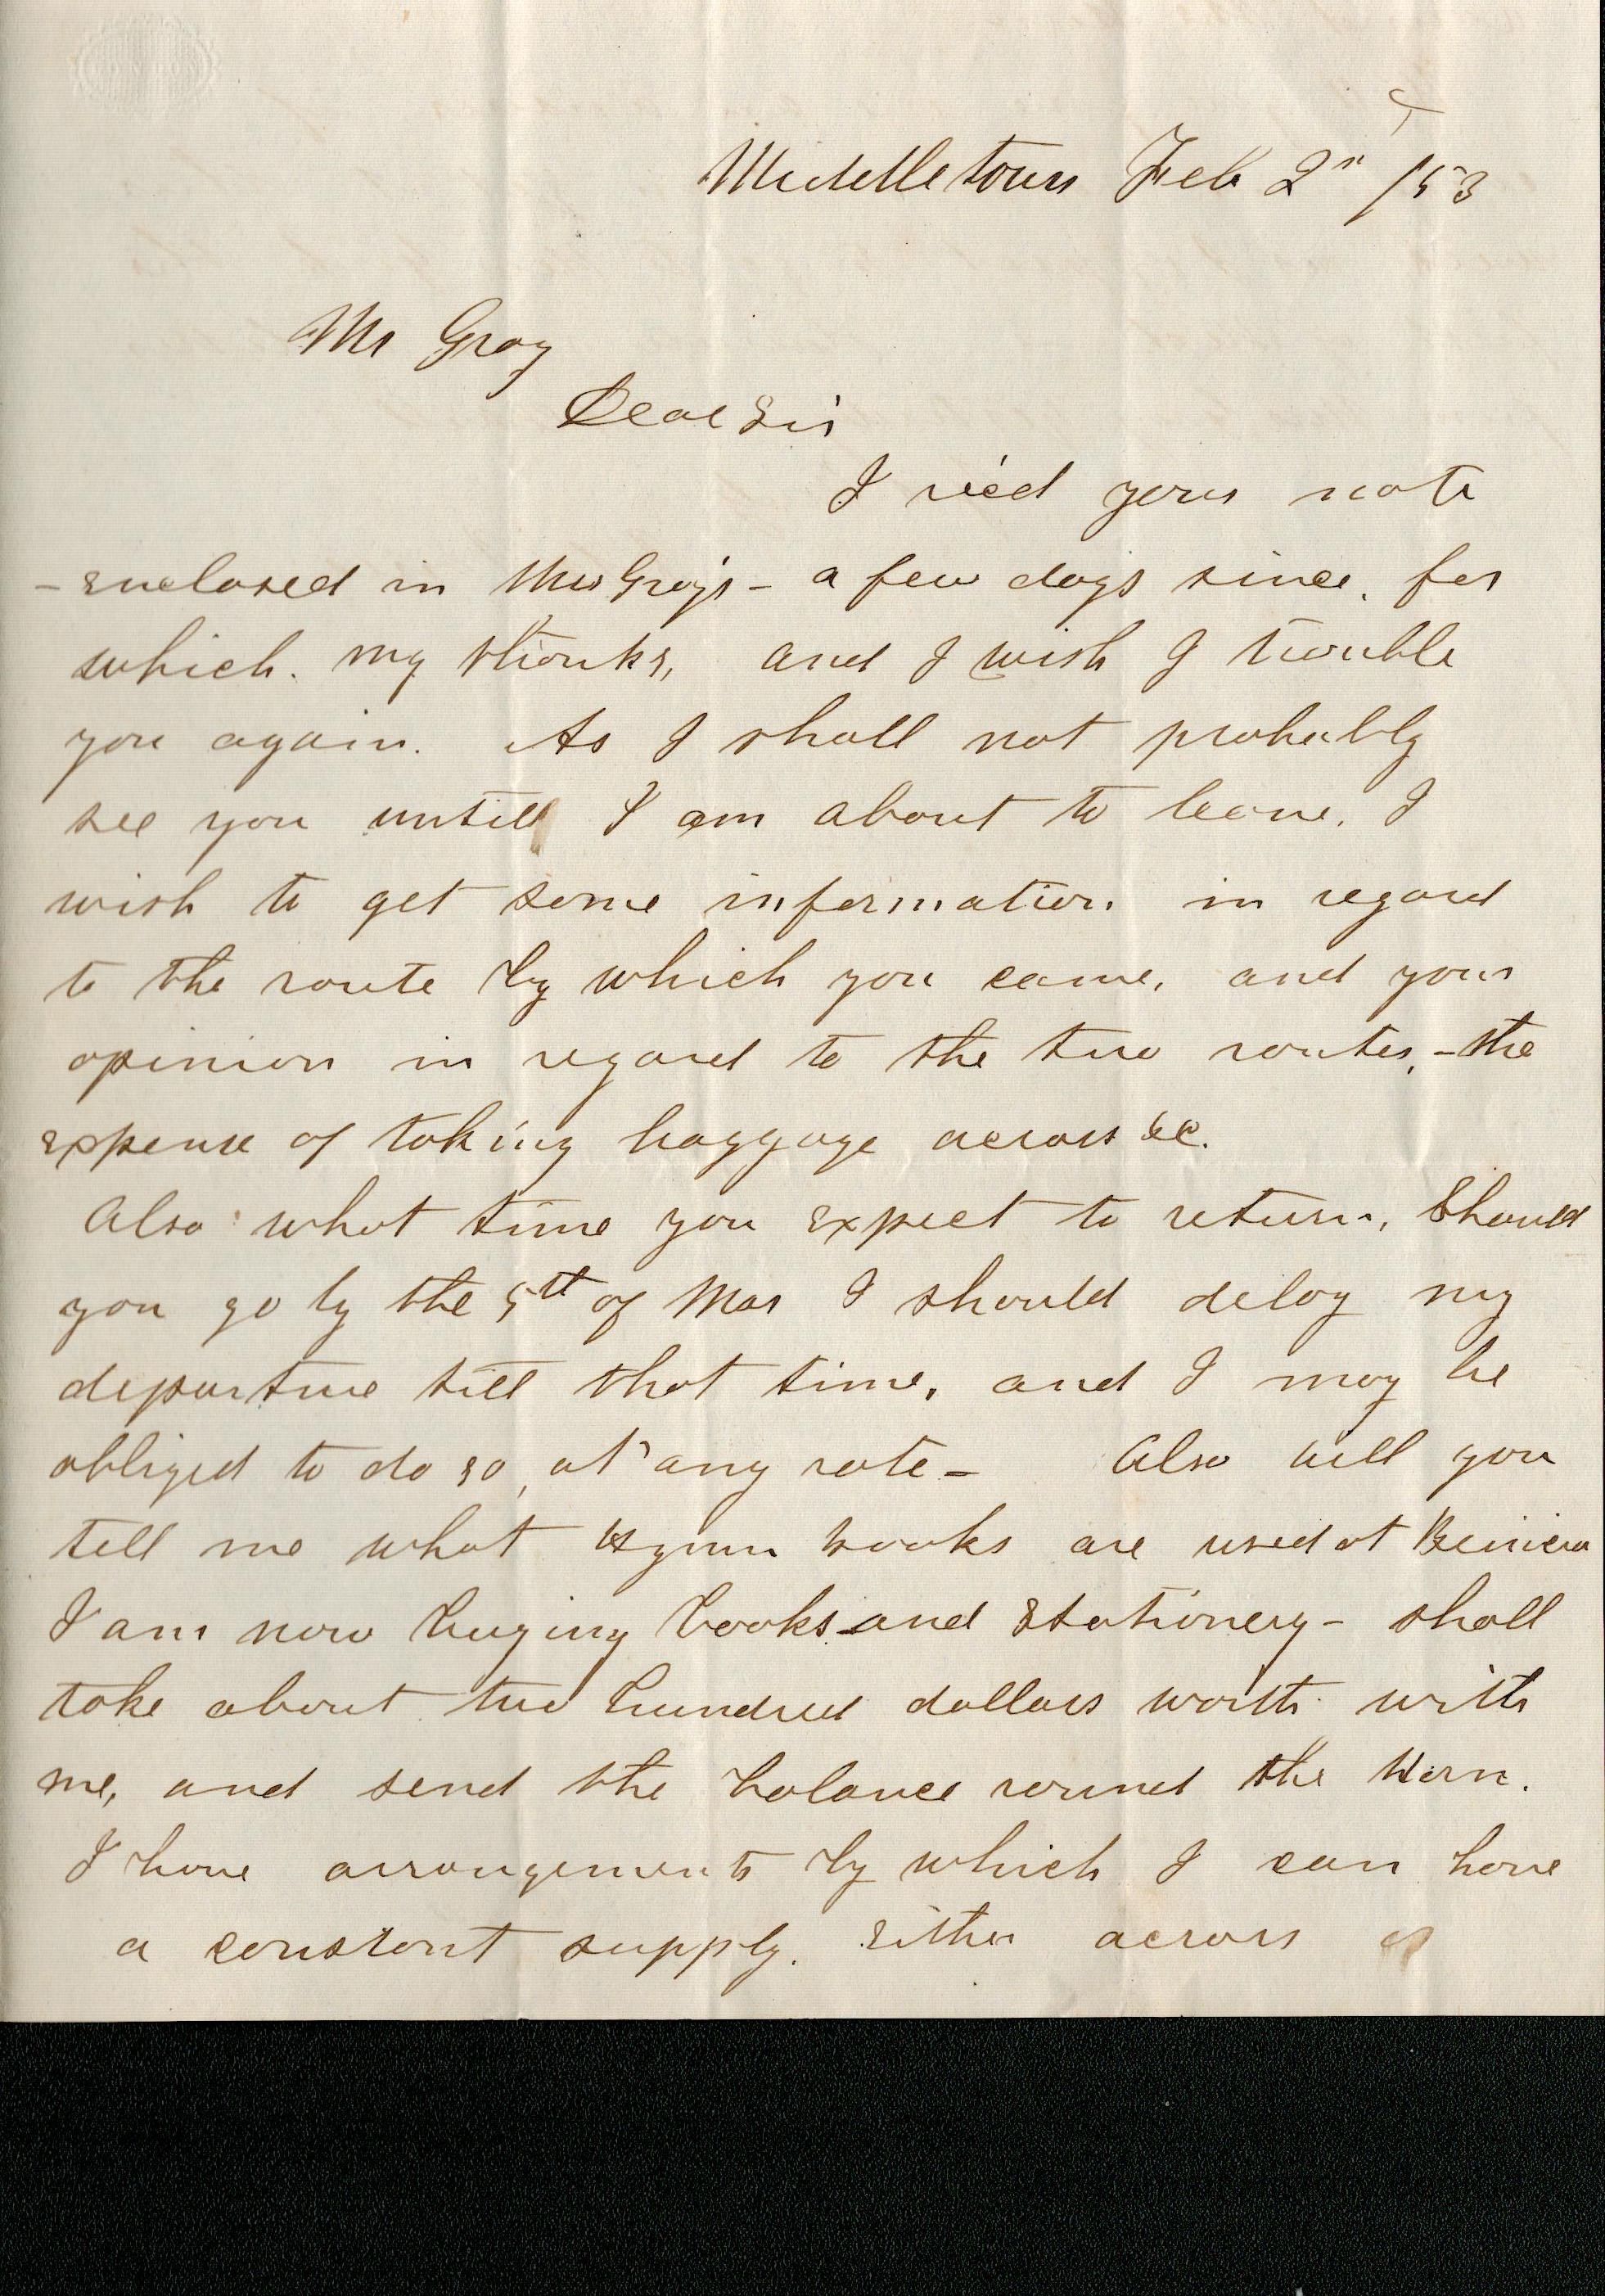 Middletown Feb 2n /53
Mr Gray
Dear Sir
I rec'd your note
- enclosed in Mrs Gray's - a few days since, for
which. my thanks, and I wish I trouble
you again. As I shall not probably
see you untill I am about to leave, I
wish to get some information in regard
to the route by which you came, and your
opinion in regard to the two routes, - the
expense of taking baggage across &c.
Also what time you expect to return, Should
you go by the 5th of Mar I should delay my
departure till that time, and I may be
obliged to do so, at any rate - Also will you
tell me what Hymn books are used at Benicia
I am now buying books and Stationery - shall
take about two hundred dollars worth with
me, and send the balance round the Horn.
I have arrangements by which I can have
a constant supply. Either across or